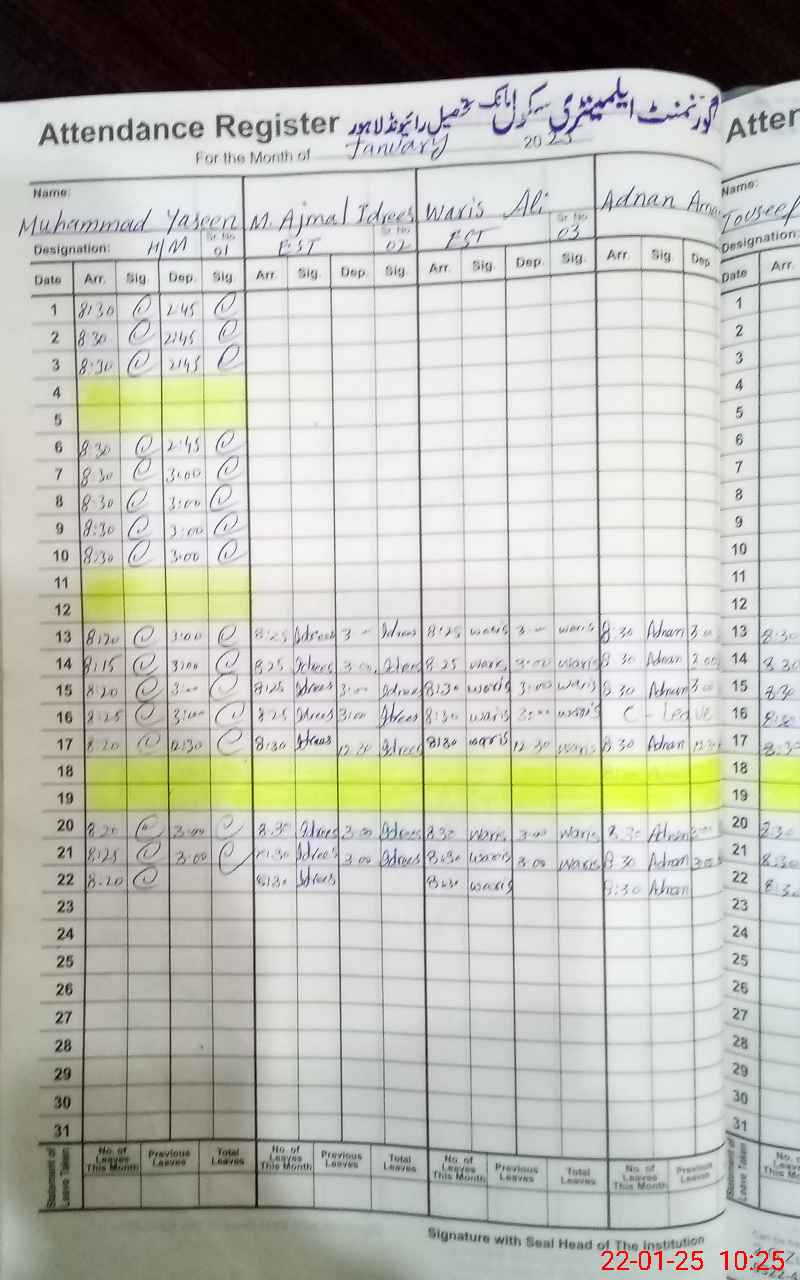 گورنمنٹ ایلیمنٹری سکول مانک تحصیل رائیونڈ لاہور
Attendance Register
For the Month of January 2025
Name:
Muhammad Yaseen M. Ajmal Idrees Waris Ali Adnan
Designation: H/M Sr No. 01 EST Sr No. 02 EST Sr No. 03
Date Arr. Sig. Dep. Sig. Arr. Sig. Dep. Sig. Arr. Sig. Dep. Sig. Arr. Sig. Dep.
1 8:30 2:45
2 8:30 2:45
3 8:30 2:45
4
5
6 8:30 2:45
7 8:30 3:00
8 8:30 3:00
9 8:30 3:00
10 8:30 3:00
11
12
13 8:20 3:00 8:25 Idrees 3:00 Idrees 8:25 waris 3:00 waris 8:30 Adnan 3:00
14 8:15 3:00 8:25 Idrees 3:00 Idrees 8:25 waris 3:00 waris 8:30 Adnan 3:00
15 8:20 3:00 8:25 Idrees 3:00 Idrees 8:30 waris 3:00 waris 8:30 Adnan 3:00
16 8:25 3:00 8:25 Idrees 3:00 Idrees 8:30 waris 3:00 waris C-Leave
17 8:20 12:30 8:30 Idrees 12:30 Idrees 8:30 waris 12:30 waris 8:30 Adnan 12:30
18
19
20 8:20 3:00 8:30 Idrees 3:00 Idrees 8:30 waris 3:00 waris 8:30 Adnan 3:00
21 8:25 3:00 8:30 Idrees 3:00 Idrees 8:30 waris 3:00 waris 8:30 Adnan 3:00
22 8:20 8:30 Idrees 8:30 waris 8:30 Adnan
23
24
25
26
27
28
29
30
31
Statement of Leave Taken
No. of Leaves This Month Previous Leaves Total Leaves No. of Leaves This Month Previous Leaves Total Leaves No. of Leaves This Month Previous Leaves Total Leaves No. of Leaves This Month Previous Leaves
Signature with Seal Head of The Institution
Atten
Name:
Touseef
Designation:
Date Arr.
1
2
3
4
5
6
7
8
9
10
11
12
13 8:30
14 8:30
15 8:30
16
17 8:30
18
19
20 8:30
21 8:30
22 8:30
23
24
25
26
27
28
29
30
31
22-01-25 10:25